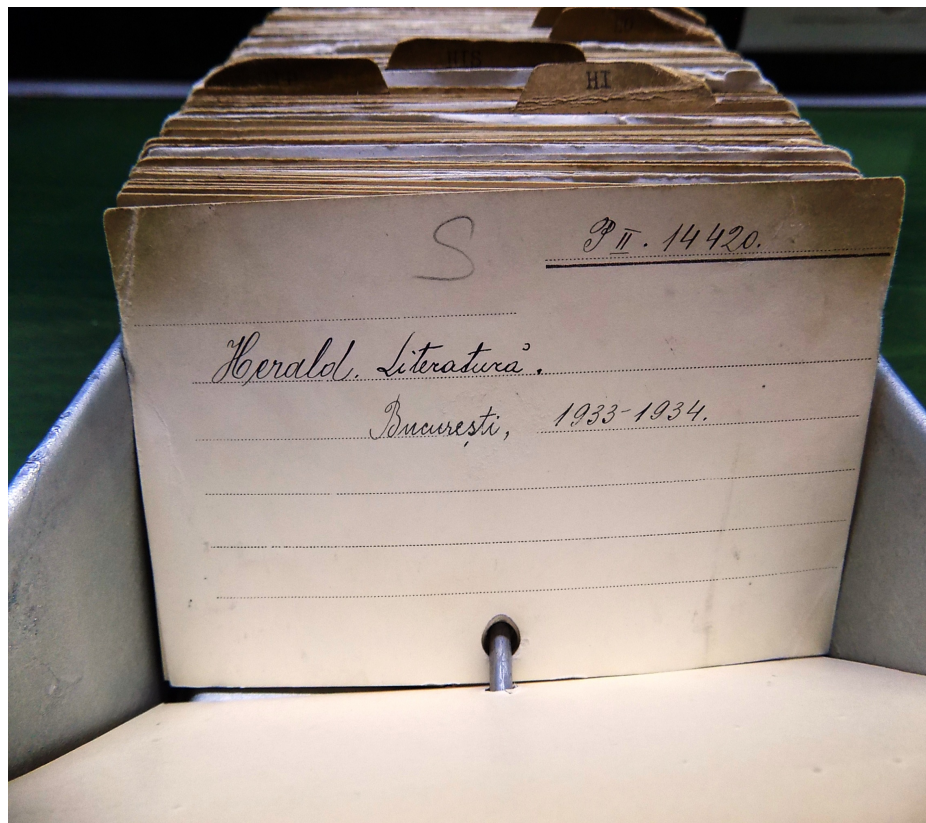 HIS
HI
S
P II. 14420.
Herald. Literatură.
București,
1933-1934.